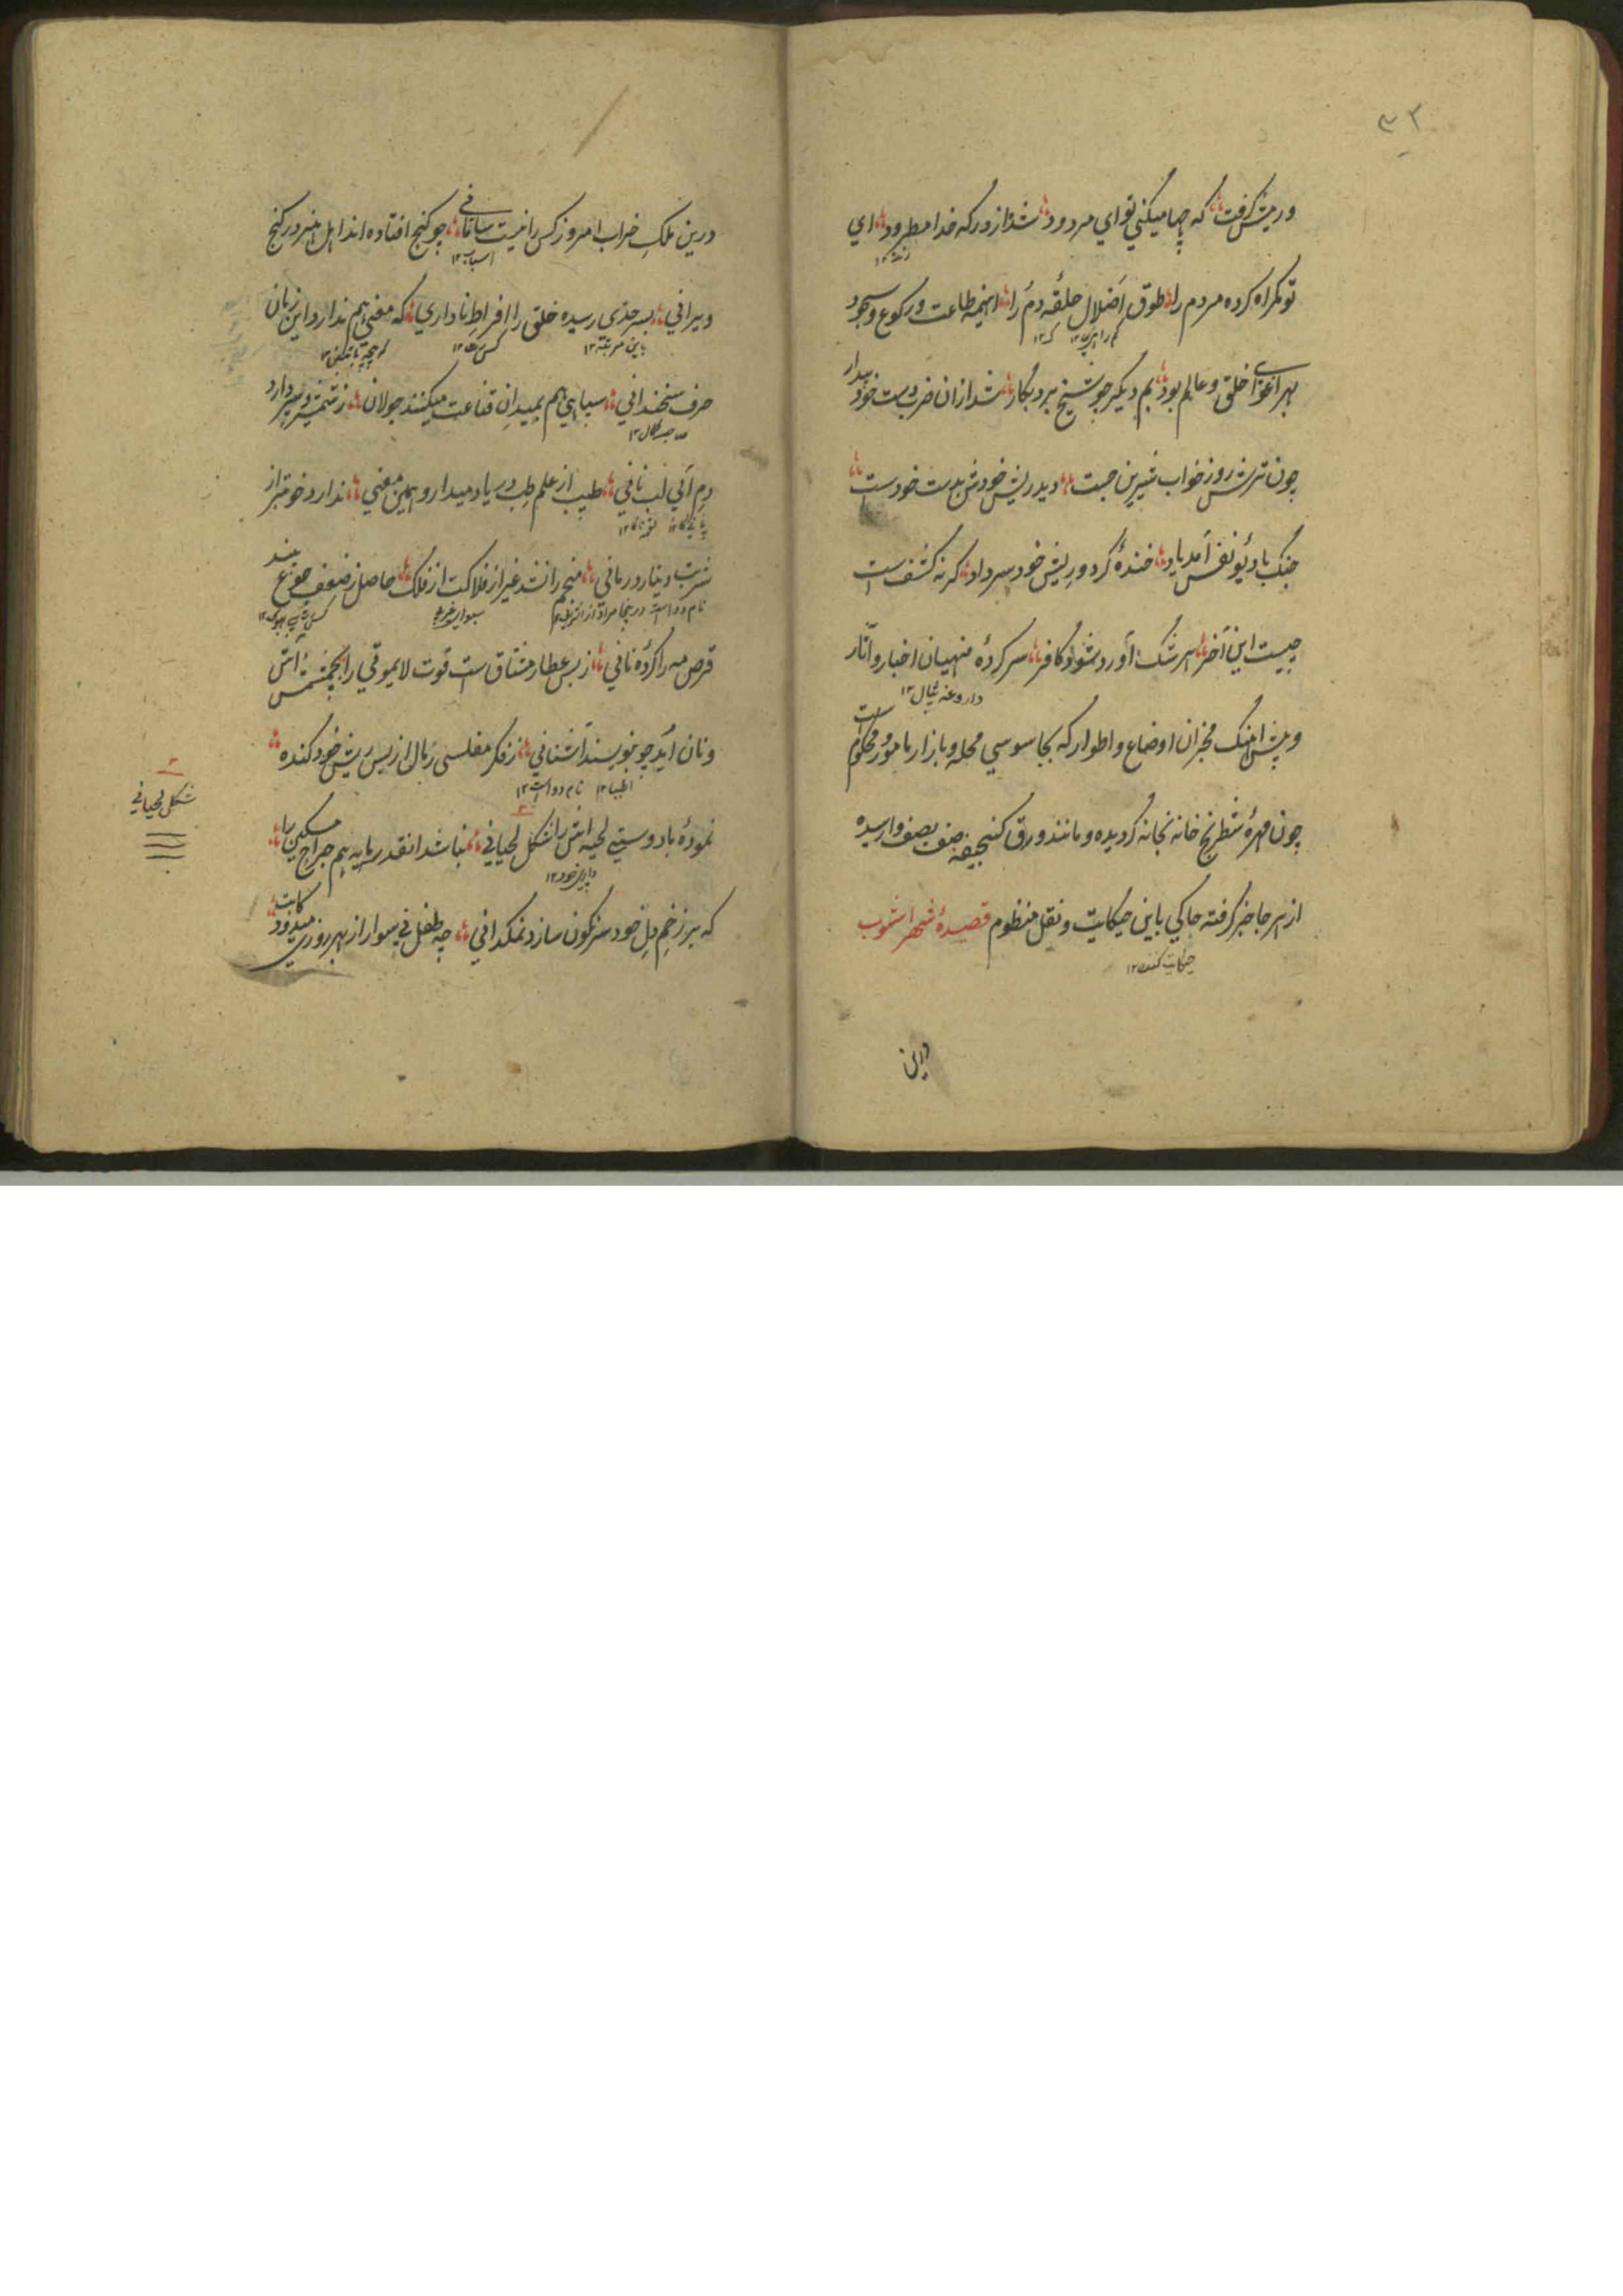 ۳۲
وریش گرفت که چها میکنی تو ای مردود شد از درکه خدا مطرود ای
تو گمراه کرده مردم را طوق اضلال حلقه دم را اینهمه طاعت و رکوع و سجود
بهر اغوای خلق و عالم بود بم دیگر چو شیخ برد بکار شد ازان ضرب دست خود بیدار
چون ترش روز خواب شیرین جست دید ریش خودش بدست خودست
جنک با دیو نفس آمد یاد خنده کرد و ریش خود سر داد گر نه کشف است
چیست این آخر هر شک آورد شود کافر سرکرده منهیان اخبار و آثار
داروغه
و پیش آهنک مخبران اوضاع و اطوار که بجاسوسی محله و بازار مامور و محکوم است
چون مهره شطرنج خانه بخانه گردیده و مانند ورق گنجیفه صف بصف وارسیده
از هر جا خبر گرفته حاکی باین حکایت و نقل منظوم قصیده شهر اشوب
حکایت کننده ۱۲
درین
درین ملک خراب امروز کس را نیست سامانی چو گنج افتاده اند اهل هنر در کنج
اسباب ۱۲
ویرانی بسر حدی رسیده خلق را افراط ناداری که مفتی هم ندارد این زمان
باین مرتبه ۱۲
حرف سخندانی سپاهی هم بمیدان قناعت میکنند جولان ز شمشیر و سپر دارد
دم آبی لب نانی طبیب از علم طب در یاد میدارد همین معنی ندارد خوبتر از
شربت دینار درمانی منجم را نشد غیر از فلاکت از فلک حاصل ز ضعف جوع بیند
نام دوا است درینجا مراد از
قرص مه را گرده نانی ز بس عطار مشتاق ست قوت لایموتی را بچشمش آش
و نان آید چو بنویسند آشنانی ز فکر مفلسی رمال از بس ریش خود کنده
اطبا ۱۲ نام دوا است ۱۲
نموده بادوستی لحیه اش را شکل لحیانی نباشد انقدر سرمایه هم جراح مسکین را
شکل لحیانی
که بر زخم دل خود سرنگون سازد نمکدانی چه طفل نی سوار از بهر روزی میدود کاتب